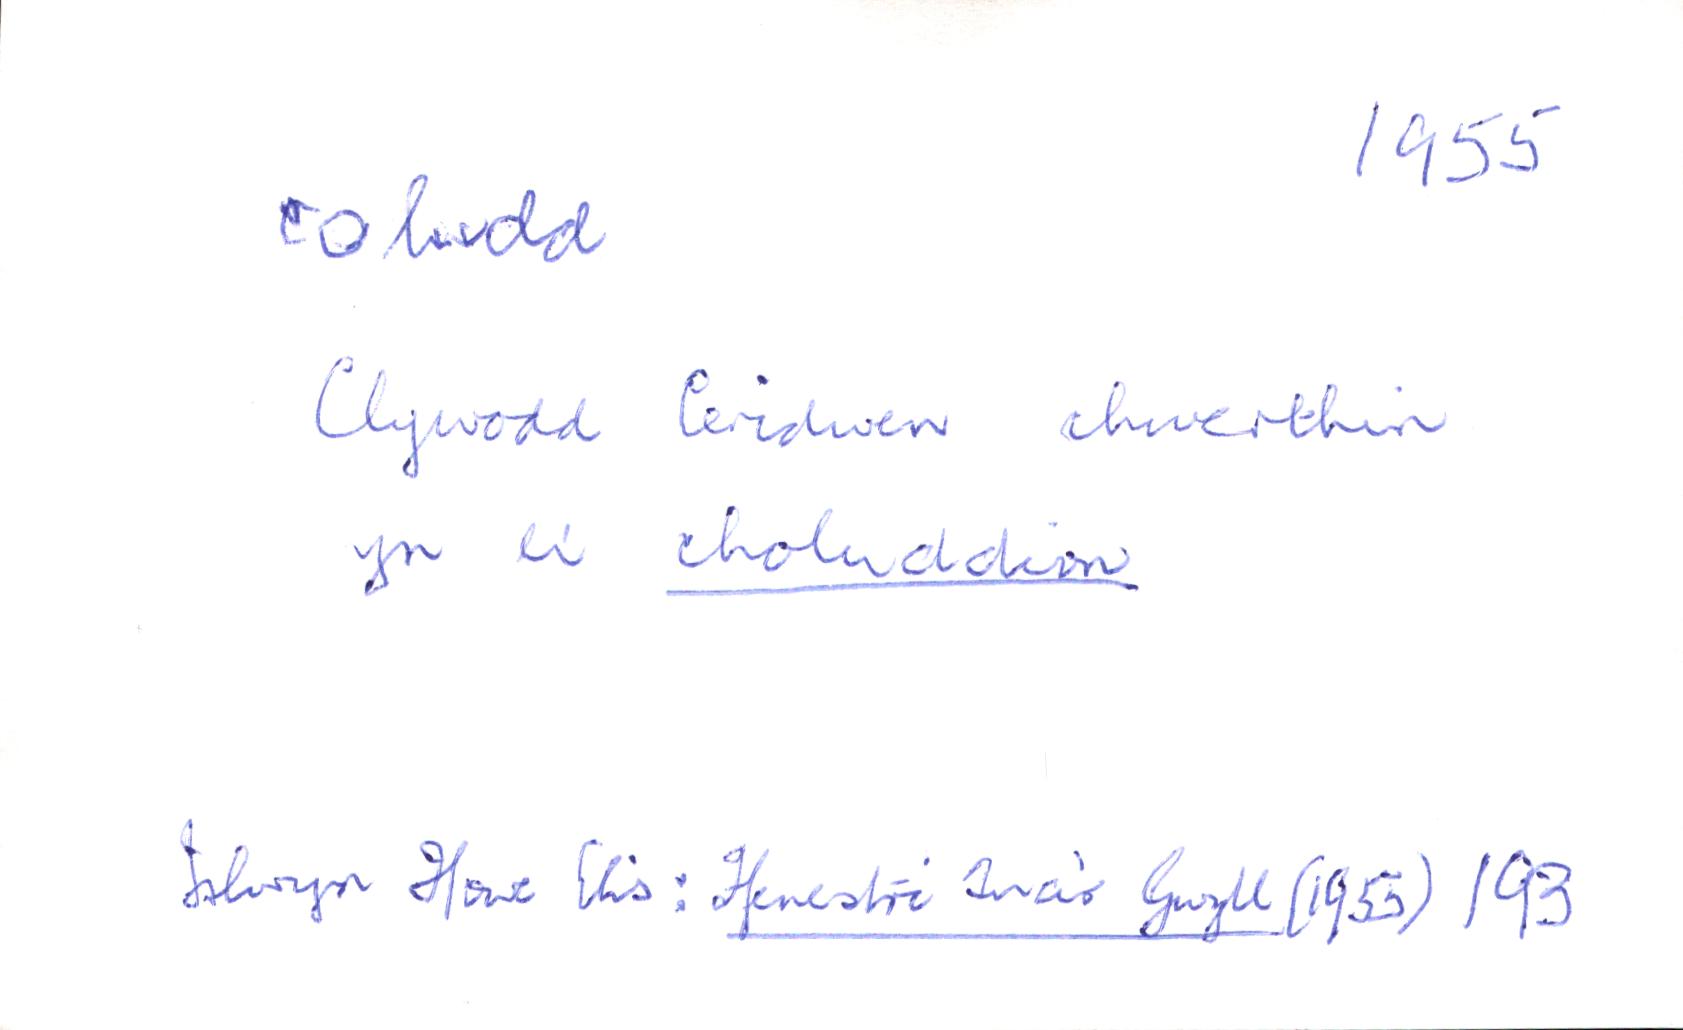 1955
coludd
Clywodd Ceridwen chwerthin
yn ei choluddion
Islwyn Ffowc Elis: Ffenestri Tua'r Gwyll (1955) 193